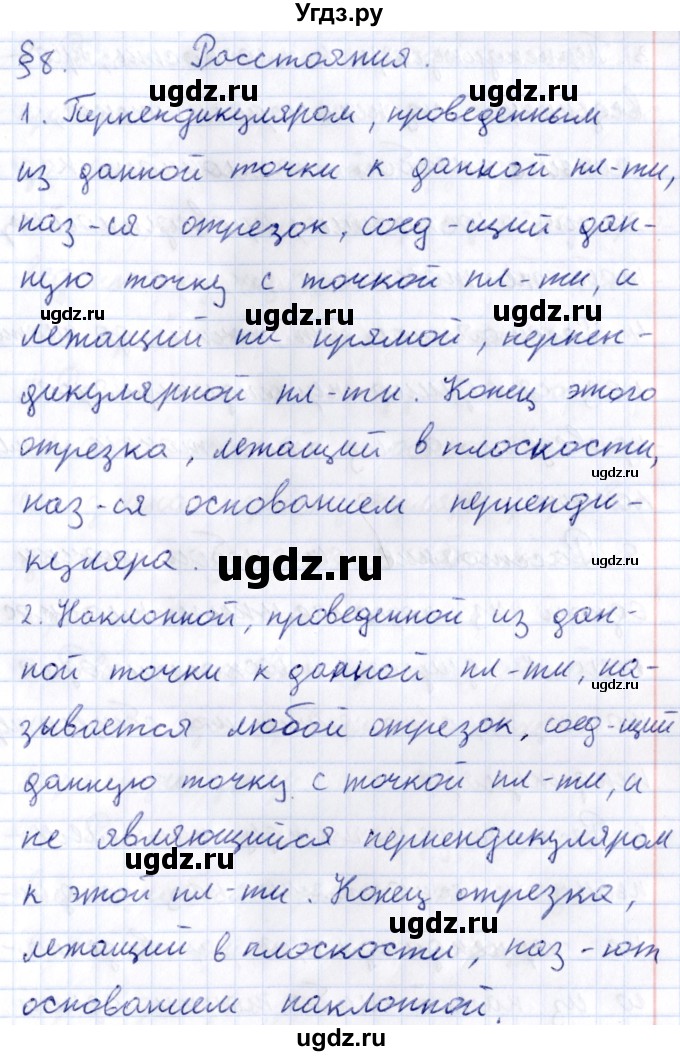 Угдз.ру
§8. Расстояния.
ugdz.ru ugdz.ru
1. Перпендикуляром, проведенным
из данной точки к данной пл-ти,
ugdz.ru ugdz.ru
наз-ся отрезок, соед-щий дан-
ную точку с точкой пл-ти, и
ugdz.ru ugdz.ru ugdz.ru
лежащий на прямой, перпен-
дикулярной пл-ти. Конец этого
отрезка, лежащий в плоскости,
ugdz.ru
наз-ся основанием перпенди-
куляра.
ugdz.ru ugdz.ru
2. Наклонной, проведенной из дан-
ной точки к данной пл-ти, на-
ugdz.ru
зывается любой отрезок, соед-щий
данную точку с точкой пл-ти, и
не являющийся перпендикуляром
ugdz.ru
к этой пл-ти. Конец отрезка,
ugdz.ru
лежащий в плоскости, наз-ют
основанием наклонной.
ugdz.ru